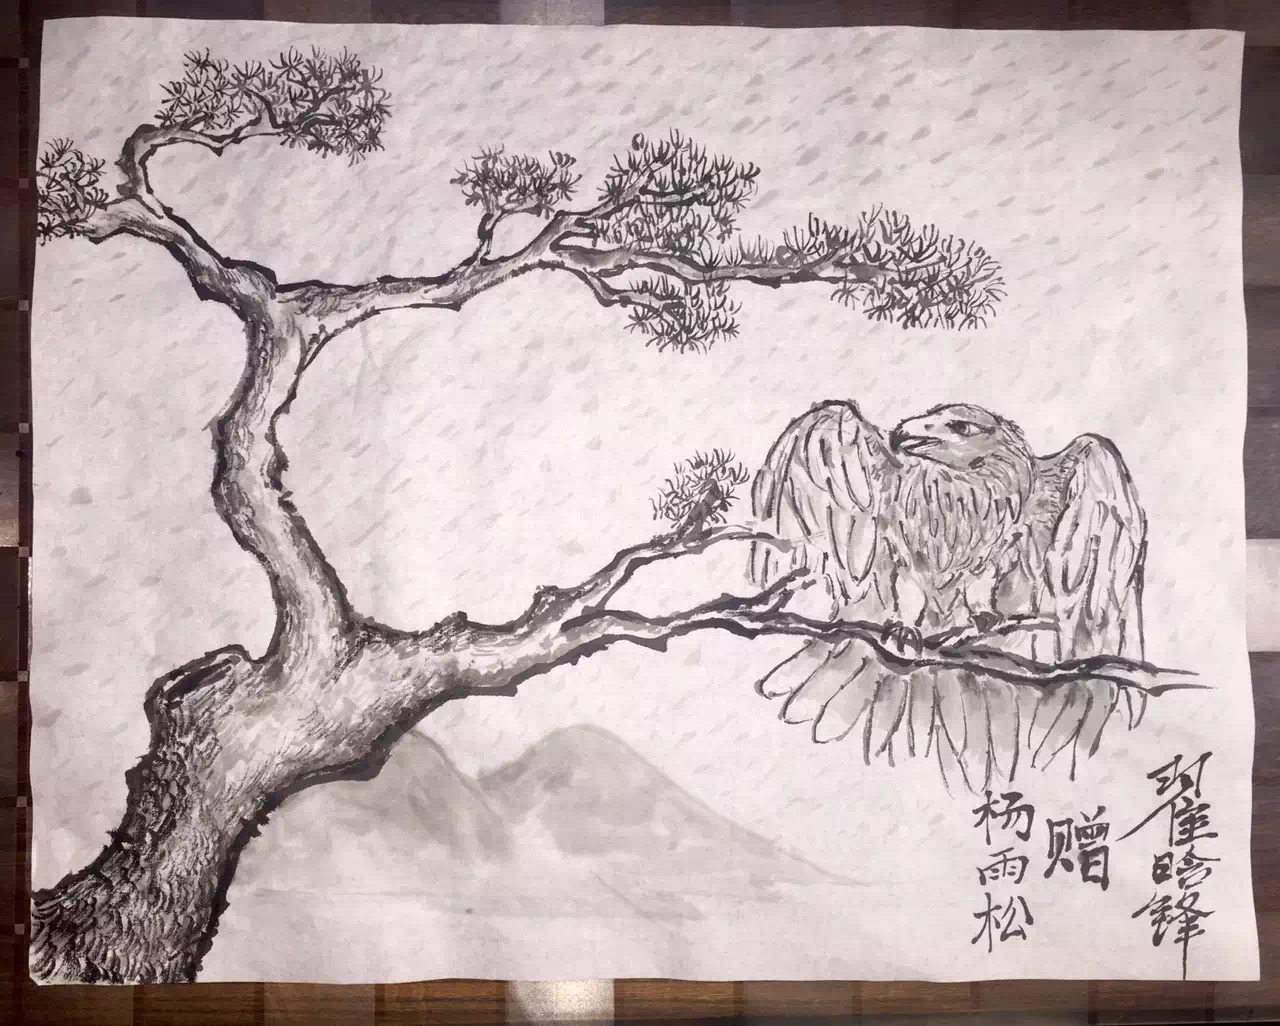 翟晗锋
赠
杨雨松